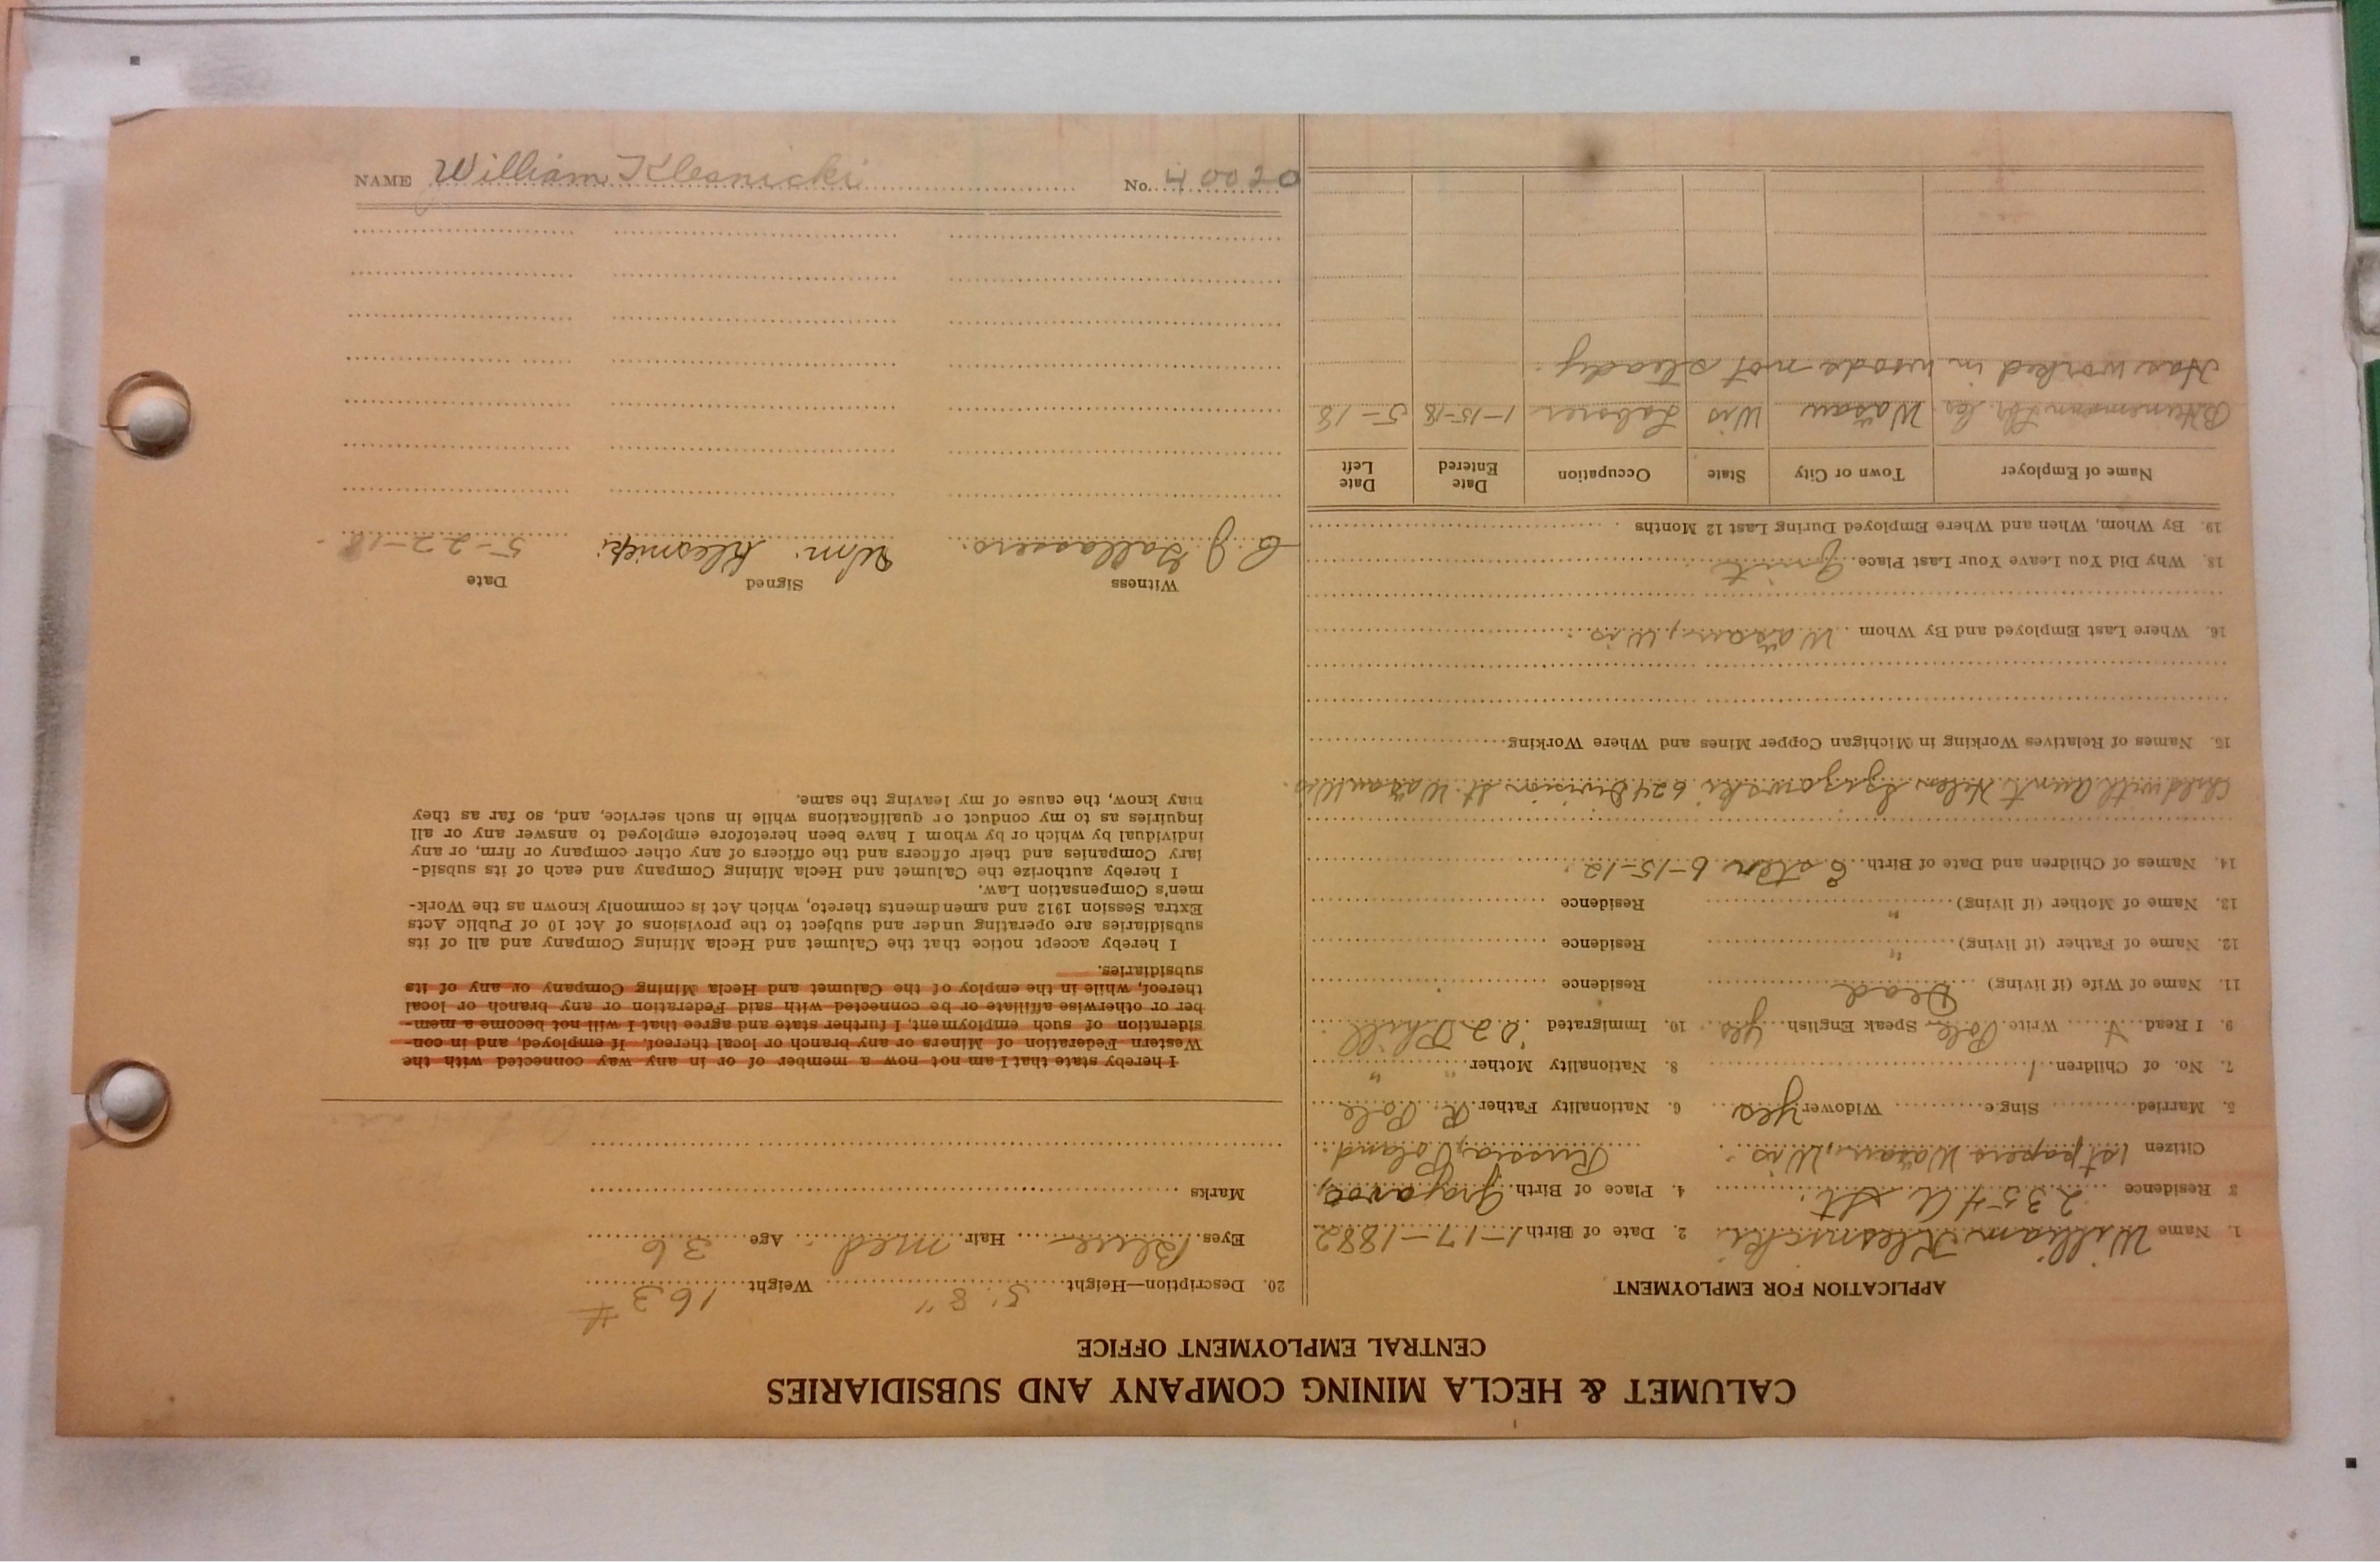 CALUMET & HECLA MINING COMPANY AND SUBSIDIARIES
CENTRAL EMPLOYMENT OFFICE
APPLICATION FOR EMPLOYMENT
1. Name William Klesnicki 2. Date of Birth 1-17-1882
3 Residence 2354 A St. 4. Place of Birth
Citizen 1st papers Wasau, Wis. Russia, Poland.
5. Married Single Widower yes 6. Nationality Father R. Pole
7. No. of Children 1 8. Nationality Mother " "
9. I Read Write Pole Speak English yes 10. Immigrated '02 Phill
11. Name of Wife (if living) Dead Residence
12. Name of Father (if living) " Residence
13. Name of Mother (if living) " Residence
14. Names of Children and Date of Birth 6-15-12.
Child with Aunt Helen 624 Division St. Wasau Wis.
15. Names of Relatives Working in Michigan Copper Mines and Where Working
16. Where Last Employed and By Whom Wasau, Wis.
18. Why Did You Leave Your Last Place
19. By Whom, When and Where Employed During Last 12 Months
Name of Employer Town or City State Occupation Date Entered Date Left
Wasau Wis Laborer 1-15-18 5-18
Has worked in woods not steady.
20. Description—Height 5' 8" Weight 163 #
Eyes Blue Hair med. Age 36
Marks
I hereby state that I am not now a member of or in any way connected with the
Western Federation of Miners or any branch or local thereof. If employed, and in con-
sideration of such employment, I further state and agree that I will not become a mem-
ber or otherwise affiliate or be connected with said Federation or any branch or local
thereof, while in the employ of the Calumet and Hecla Mining Company or any of its
subsidiaries.
I hereby accept notice that the Calumet and Hecla Mining Company and all of its
subsidiaries are operating under and subject to the provisions of Act 10 of Public Acts
Extra Session 1912 and amendments thereto, which Act is commonly known as the Work-
men's Compensation Law.
I hereby authorize the Calumet and Hecla Mining Company and each of its subsid-
iary Companies and their officers and the officers of any other company or firm, or any
individual by which or by whom I have been heretofore employed to answer any or all
inquiries as to my conduct or qualifications while in such service, and, so far as they
may know, the cause of my leaving the same.
Witness Signed Date
Wm. Klesnicki 5-22-18
NAME William Klesnicki No. 40020